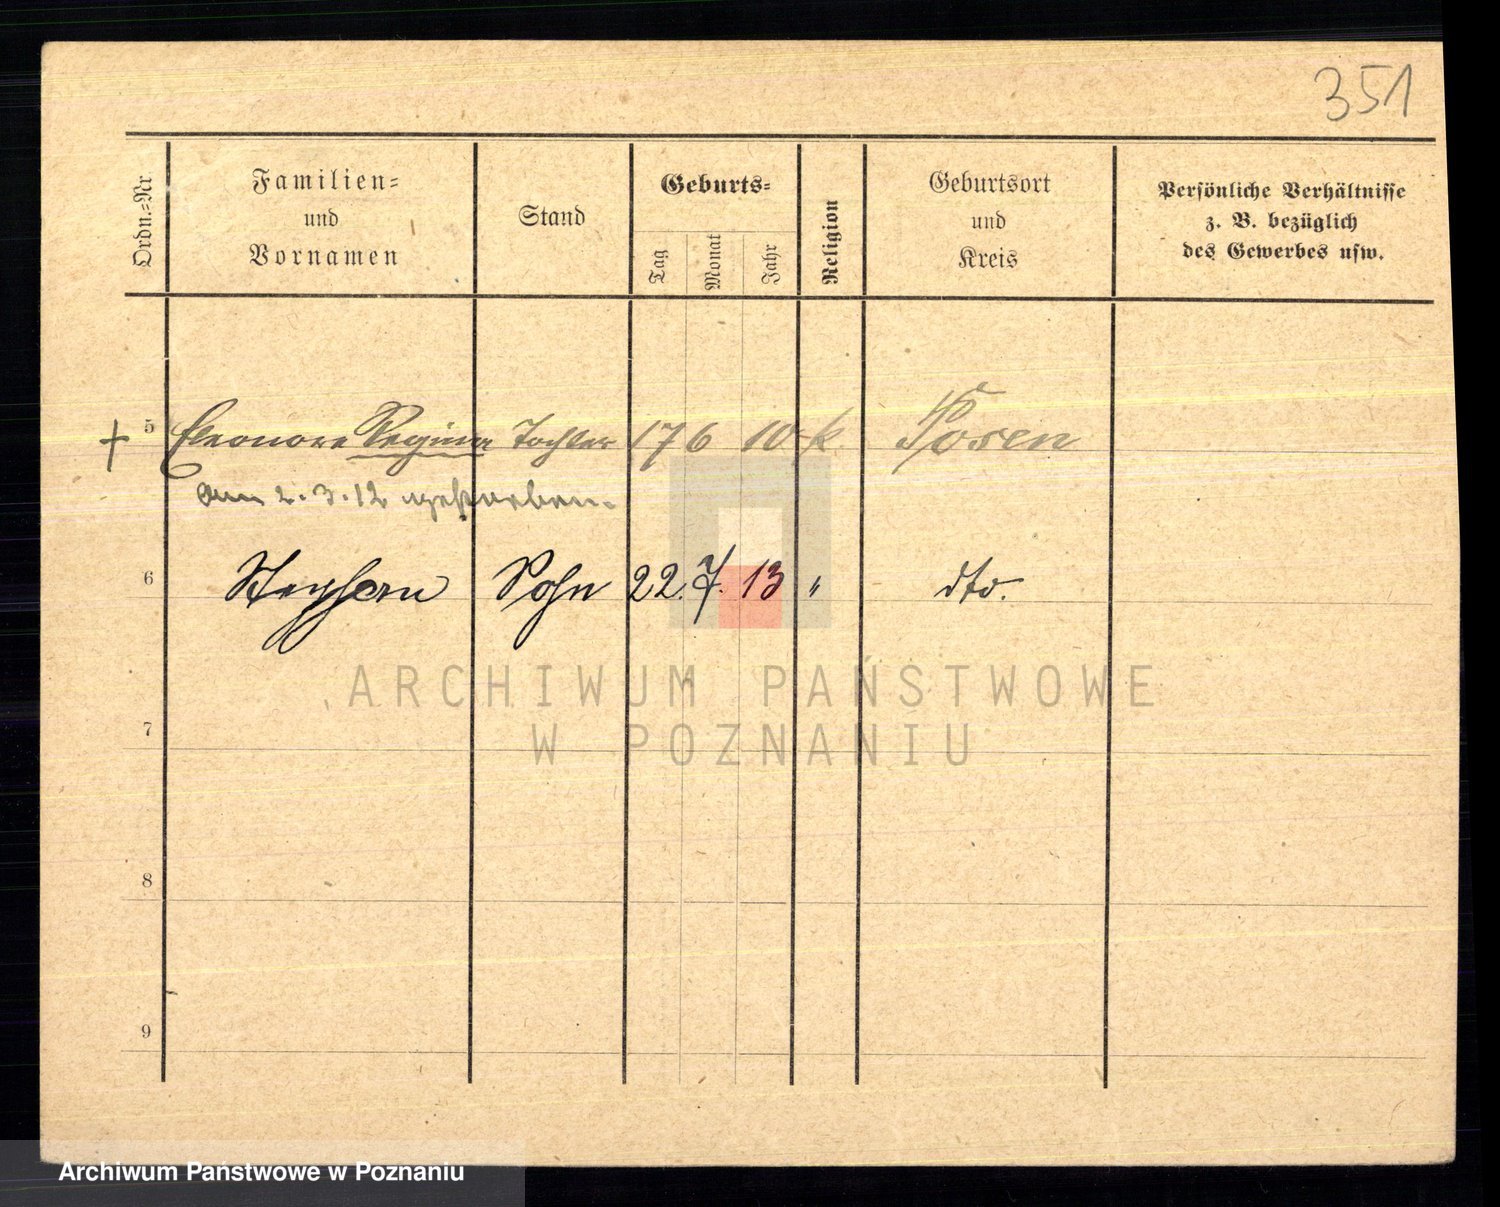 351
Ordn.-Nr
Familien-
und
Vornamen
Stand
Geburts-
Tag
Monat
Jahr
Religion
Geburtsort
und
Kreis
Persönliche Verhältnisse
z. B. bezüglich
des Gewerbes usw.
† 5 Eleonore Regina Tochter 17 6 10 k. Posen
am 2.3.12 gestorben.
6 Stephan Sohn 22. 7. 13 " dto.
7
8
9
ARCHIWUM PAŃSTWOWE
W POZNANIU
Archiwum Państwowe w Poznaniu